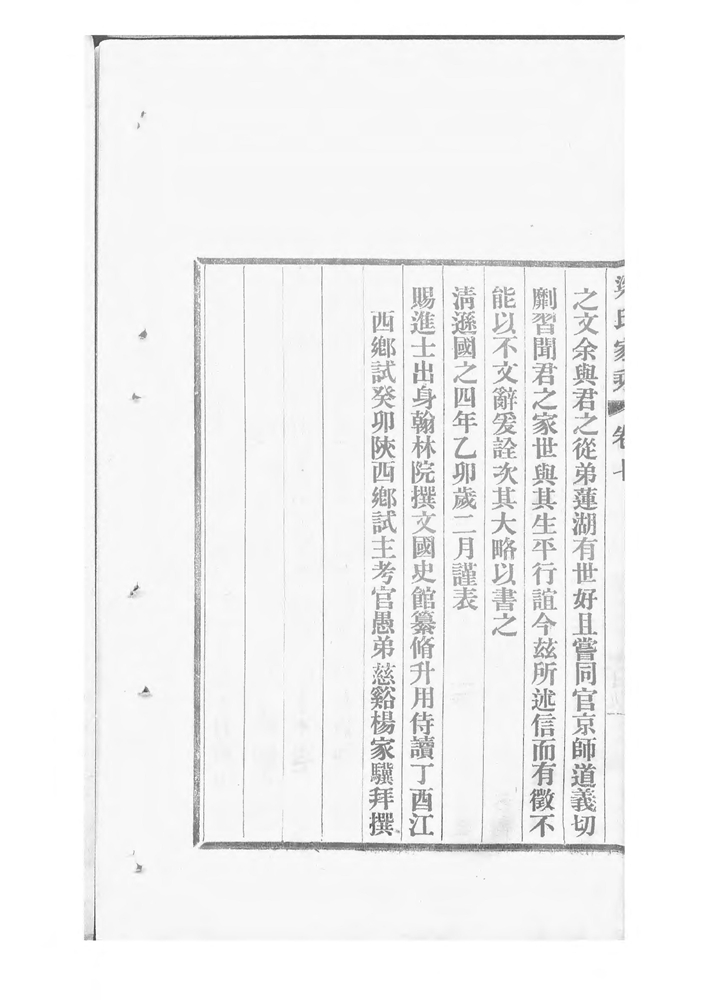 氏家乘 卷
之文余與君之從弟蓮湖有世好且嘗同官京師道義切
劘習聞君之家世與其生平行誼今兹所述信而有徵不
能以不文辭爰詮次其大略以書之
清遜國之四年乙卯歲二月謹表
賜進士出身翰林院撰文國史館纂脩升用侍讀丁酉江
西鄉試癸卯陝西鄉試主考官愚弟慈谿楊家驥拜撰